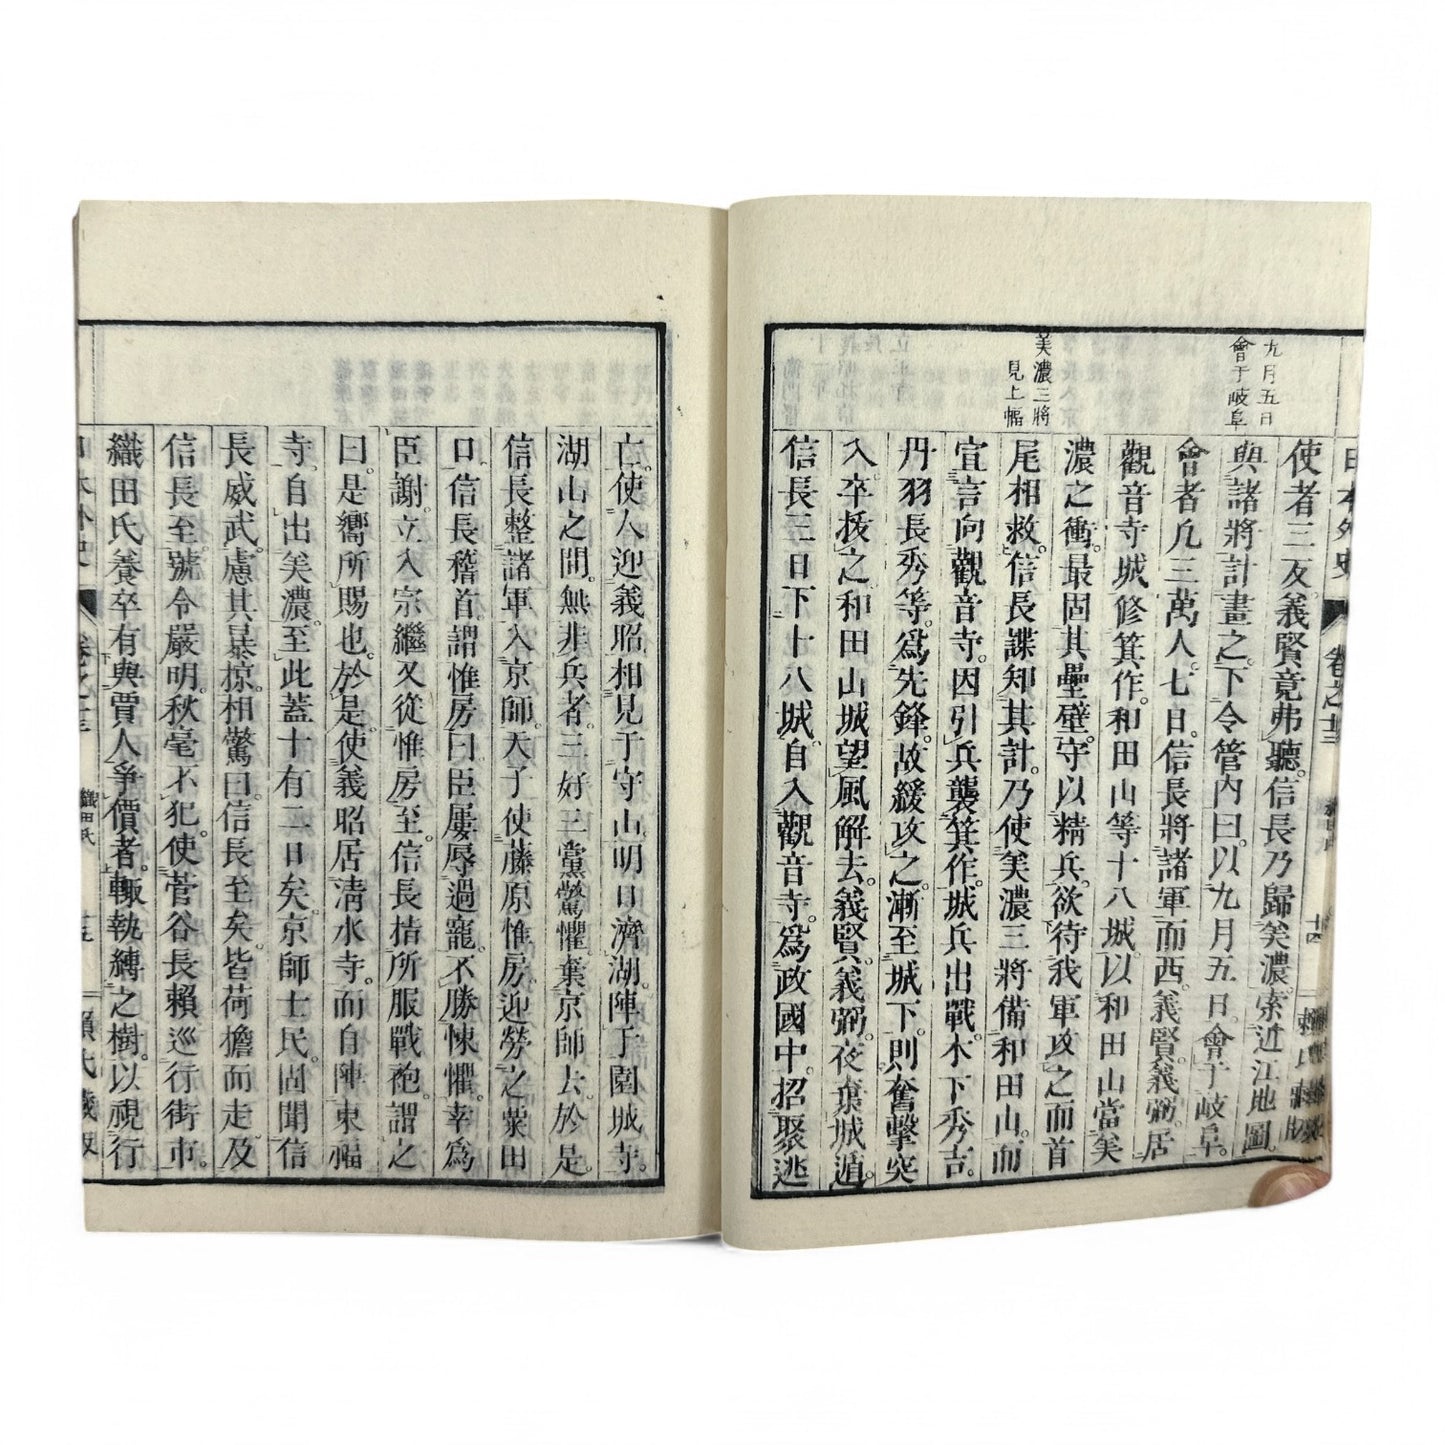 日本外史
卷之十三
十四
九月五日
會于岐阜
美濃三將
見上幅
使者三反。義賢竟弗聽。信長乃歸美濃。索近江地圖。
與諸將計畫之。下令管內曰。以九月五日。會于岐阜。
會者凡三萬人。七日。信長將諸軍而西。義賢。義弼。居
觀音寺城。修箕作。和田山等十八城。以和田山當美
濃之衝。最固其壘壁。守以精兵。欲待我軍攻之。而首
尾相救。信長諜知其計。乃使美濃三將備和田山。而
宣言向觀音寺。因引兵襲箕作。城兵出戰。木下秀吉。
丹羽長秀等。爲先鋒。故緩攻之。漸至城下。則奮擊突
入。卒拔之。和田山城望風解去。義賢。義弼。夜棄城遁。
信長三日下十八城。自入觀音寺。爲政國中。招聚逃
亡。使人迎義昭相見于守山。明日濟湖。陣于園城寺。
湖山之間。無非兵者。三好三黨驚懼。棄京師去。於是
信長整諸軍入京師。天子使藤原惟房迎勞之粟田
口。信長稽首。謂惟房曰。臣屢辱過寵。不勝悚懼。幸爲
臣謝。立入宗繼又從惟房至。信長指所服戰袍。謂之
曰。是嚮所賜也。於是。使義昭居淸水寺。而自陣東福
寺。自出美濃。至此蓋十有二日矣。京師士民。固聞信
長威武。慮其暴掠。相驚曰。信長至矣。皆荷擔而走。及
信長至。號令嚴明。秋毫不犯。使菅谷長賴巡行街市。
織田氏養卒有與賈人爭價者。輙執縛之樹。以視行
日本外史
卷之十三
織田氏
十五
賴氏藏版